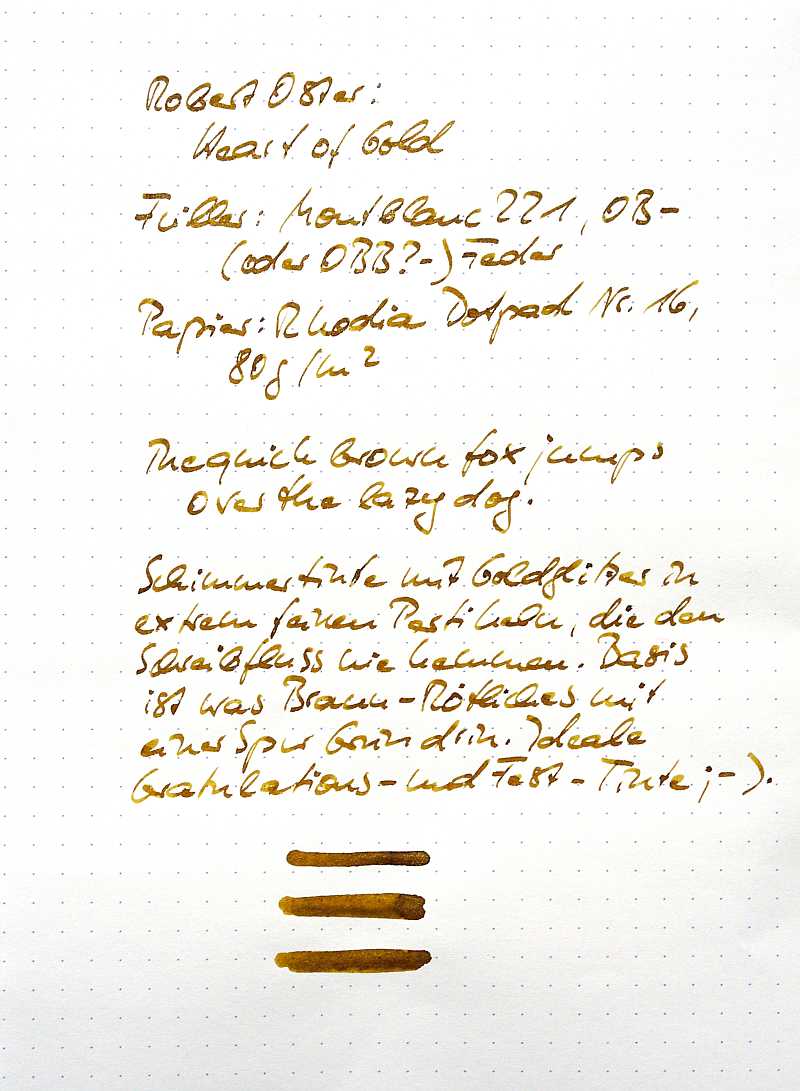 Robert Oster:
Heart of Gold
Füller: Montblanc 221, OB-
(oder OBB?-) Feder
Papier: Rhodia Dotpad Nr. 16,
80g/m²
The quick brown fox jumps
over the lazy dog.
Schimmertinte mit Goldglitzer in
extrem feinen Partikeln, die den
Schreibfluss nie hemmen. Basis
ist was Braun-Rötliches mit
einer Spur Grün drin. Ideale
Gratulations- und Fest-Tinte ;-).